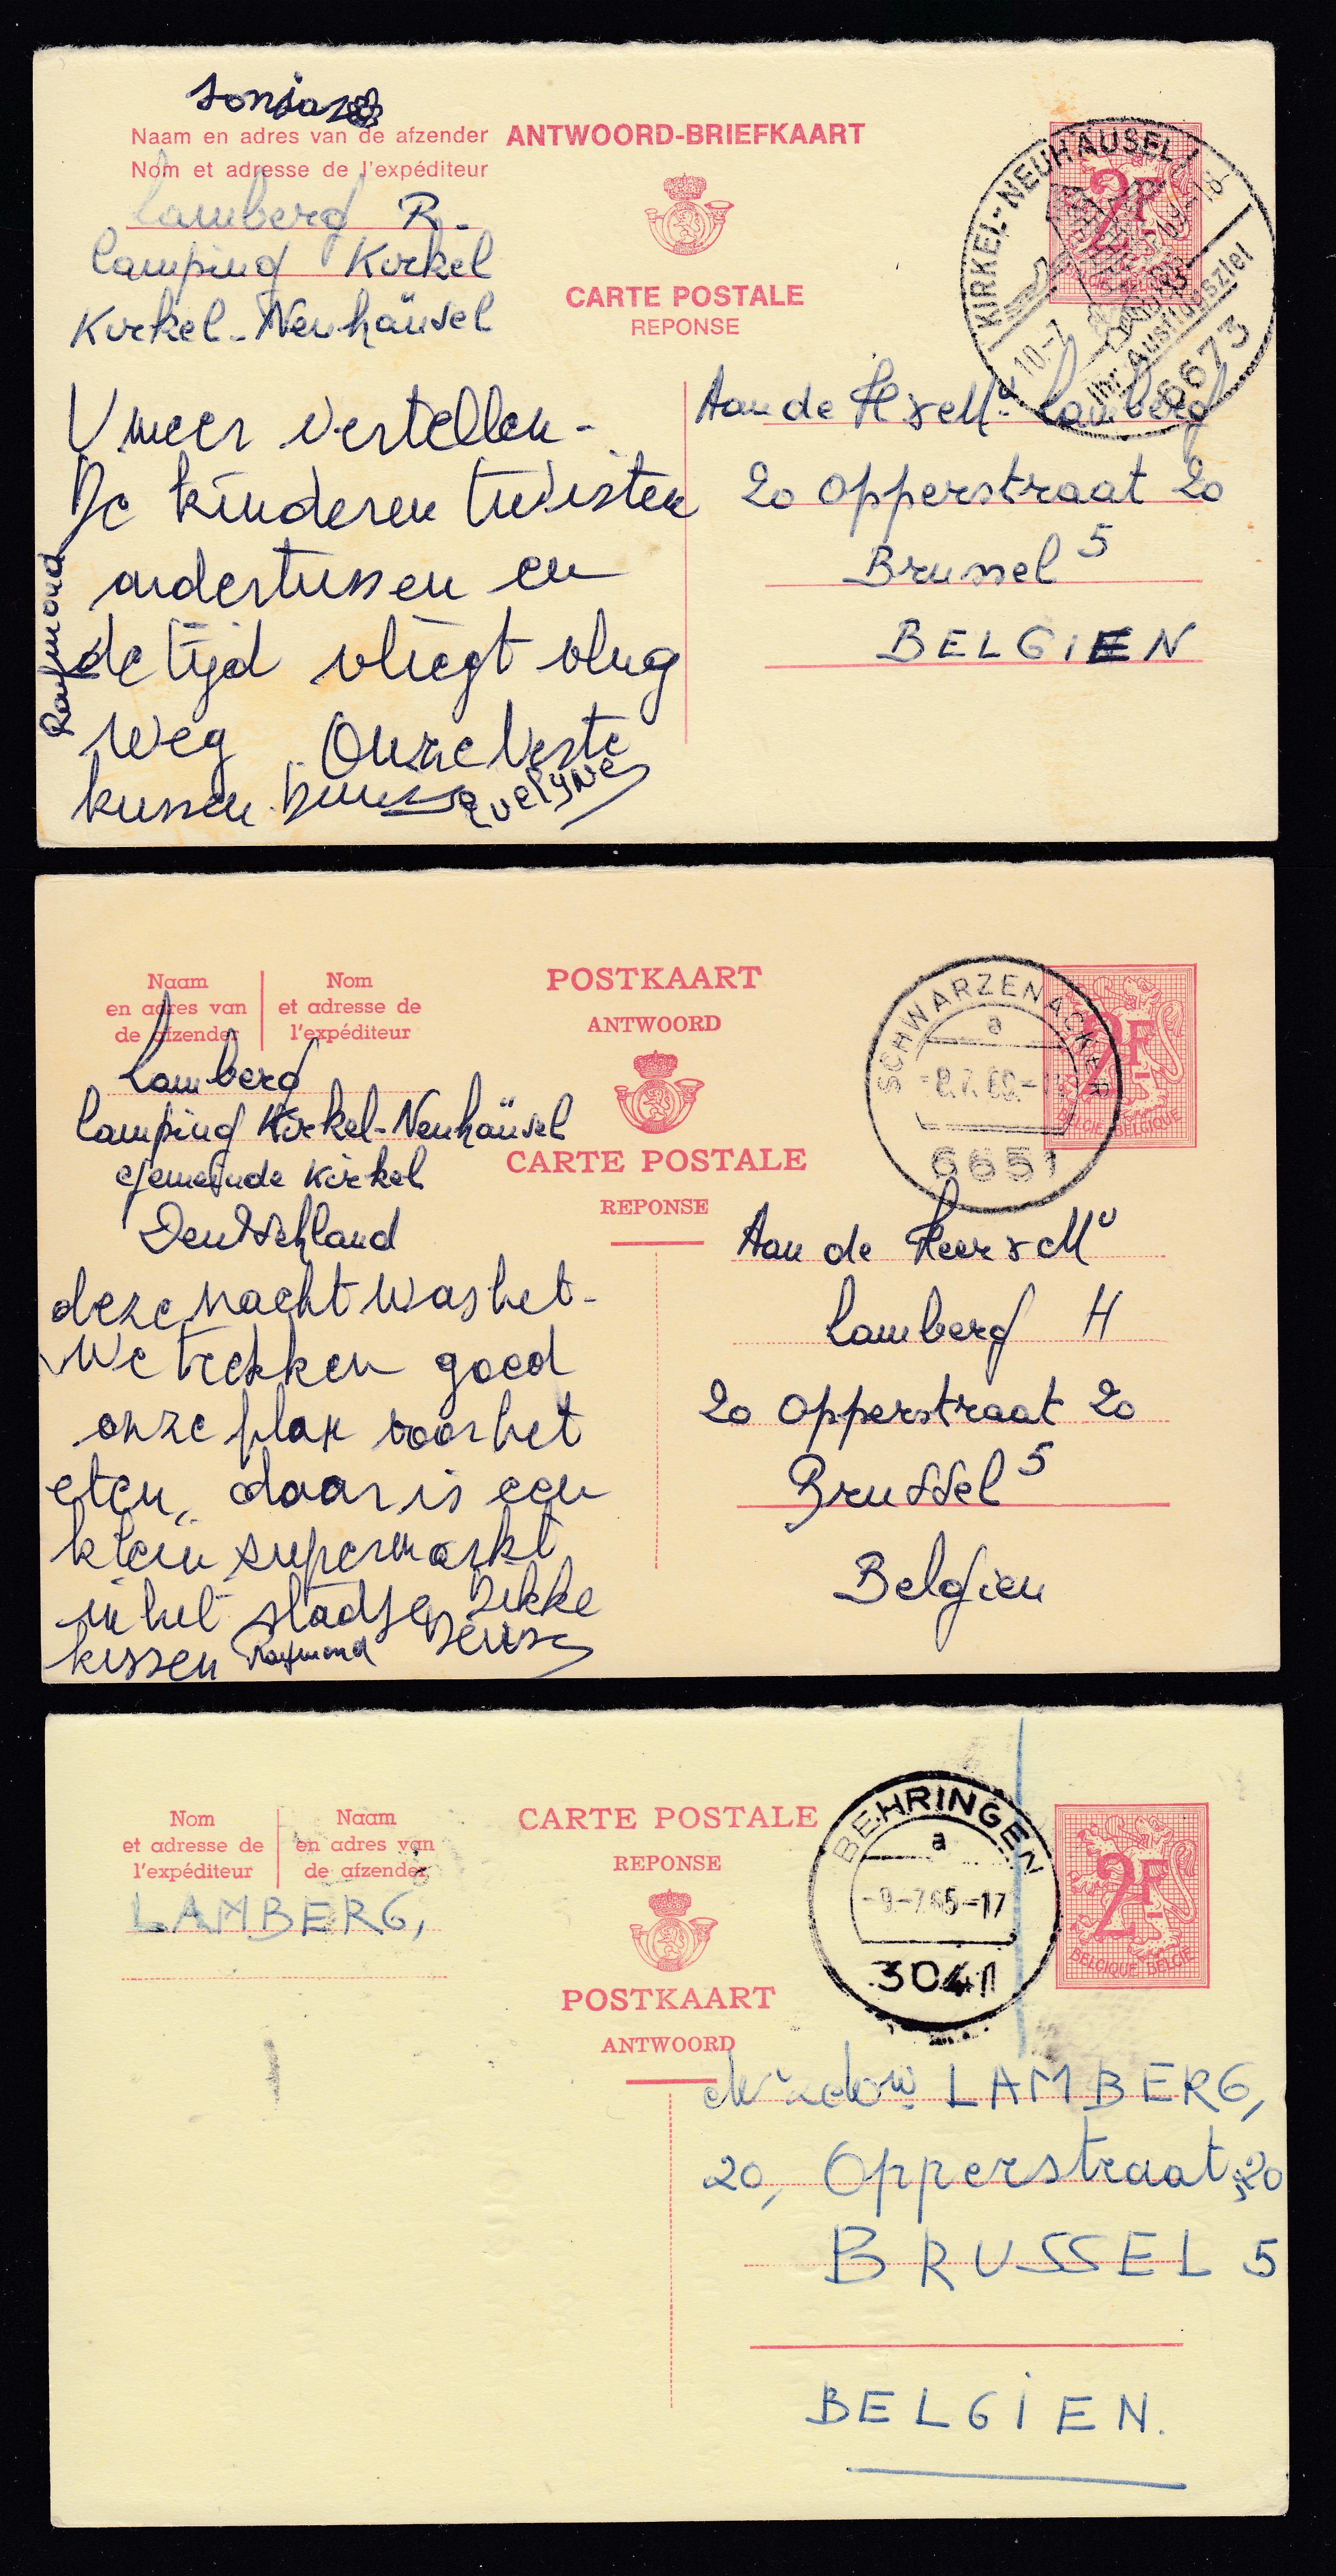 Sonja
Naam en adres van de afzender
Nom et adresse de l'expéditeur
ANTWOORD-BRIEFKAART
CARTE POSTALE
REPONSE
2F
KIRKEL-NEUHÄUSEL
10-7
Ihr Ausflugsziel
6673
Lamberg R.
Camping Kirkel
Kirkel-Neuhäusel
U meer vertellen-
De kinderen twisten
ondertussen en
de tijd vliegt vlug
weg. Onze beste
kussen. Denise
Evelyne
Raymond
Aan de H & Mv Lamberg
20 Opperstraat 20
Brussel 5
BELGIEN
Naam
en adres van
de afzender
Nom
et adresse de
l'expéditeur
POSTKAART
ANTWOORD
CARTE POSTALE
REPONSE
2F
BELGIE-BELGIQUE
SCHWARZENACKER
a
6651
Lamberg
Camping Kirkel-Neuhäusel
Gemeinde Kirkel
Deutschland
deze nacht was het-
We trekken goed
onze plan voor het
eten, daar is een
klein supermarkt
in het stadje Dikke
kussen Raymond Denise
Aan de Heer & Mv
Lamberg H
20 Opperstraat 20
Brussel 5
Belgien
Nom
et adresse de
l'expéditeur
Naam
en adres van
de afzender
CARTE POSTALE
REPONSE
POSTKAART
ANTWOORD
2F
BELGIQUE-BELGIE
BEHRINGEN
a
-9.-7.65-17
3041
LAMBERG,
LAMBERG,
20, Opperstraat, 20
BRUSSEL 5
BELGIEN.